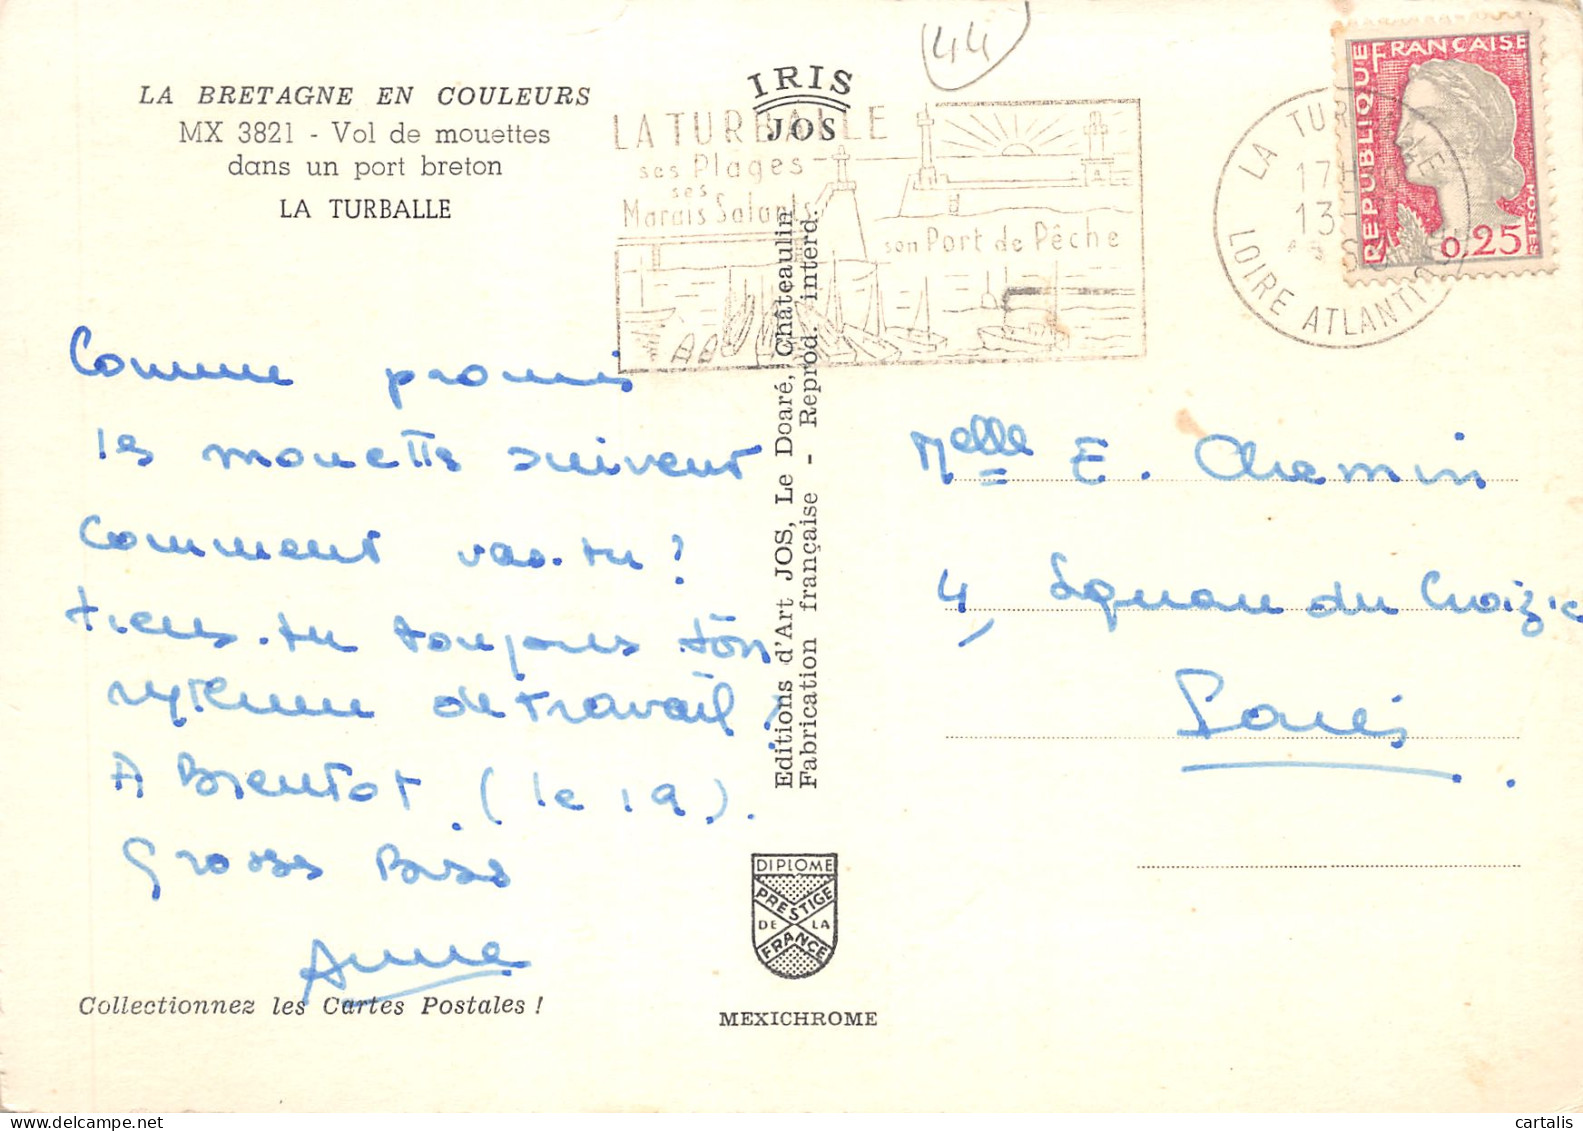 LA BRETAGNE EN COULEURS
MX 3821 - Vol de mouettes
dans un port breton
LA TURBALLE
44
IRIS
JOS
LA TURBALLE
ses Plages
ses
Marais Salants
son Port de Pêche
LA TURBALLE
17H
13-
LOIRE ATLANTI
REPUBLIQUE FRANCAISE
POSTES
0,25F
Comme promis
les mouettes suivent
Comment vas-tu ?
tiens-tu toujours ton
rythme de travail ?
A Bientot. (le 19).
Grosses Bises
Anne
Collectionnez les Cartes Postales !
Editions d'Art JOS, Le Doaré, Châteaulin
Fabrication française - Reprod. interd.
DIPLOME
PRESTIGE
DE LA
FRANCE
MEXICHROME
Melle E. Chemin
4, Square du Croizic
Paris.
cartalis